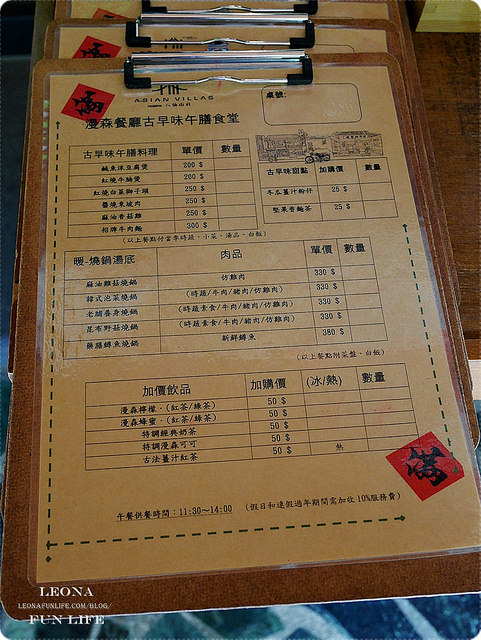 ASIAN VILLAS
漫森餐廳古早味午膳食堂
桌號:
古早味午膳料理 單價 數量
鹹魚涼豆腐煲 200 $
紅燒牛腩煲 200 $
紅燒白菜獅子頭 250 $
醬燒東坡肉 250 $
麻油香菇雞 250 $
招牌牛肉麵 300 $
(以上餐點付當季時蔬、小菜、湯品、白飯)
古早味甜點 加購價 數量
冬瓜薑汁粉仔 25 $
堅果香麵茶 25 $
暖-燒鍋湯底 肉品 單價 數量
麻油雞菇燒鍋 仿雞肉 330 $
韓式泡菜燒鍋 (時蔬/牛肉/豬肉/仿雞肉) 330 $
老饕養身燒鍋 (時蔬素食/牛肉/豬肉/仿雞肉) 330 $
昆布野菇燒鍋 (時蔬素食/牛肉/豬肉/仿雞肉) 330 $
藥膳鱘魚燒鍋 新鮮鱘魚 380 $
(以上餐點附菜盤、白飯)
加價飲品 加購價 (冰/熱) 數量
漫森檸檬-(紅茶/綠茶) 50 $
漫森蜂蜜-(紅茶/綠茶) 50 $
特調經典奶茶 50 $
特調漫森可可 50 $
古法薑汁紅茶 50 $ 熱
滿
午餐供餐時間:11:30~14:00 (假日和連假過年期間需加收10%服務費)
LEONA
LEONAFUNLIFE.COM/BLOG/
FUN LIFE